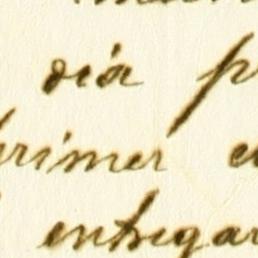 día p
rimer e
entregar